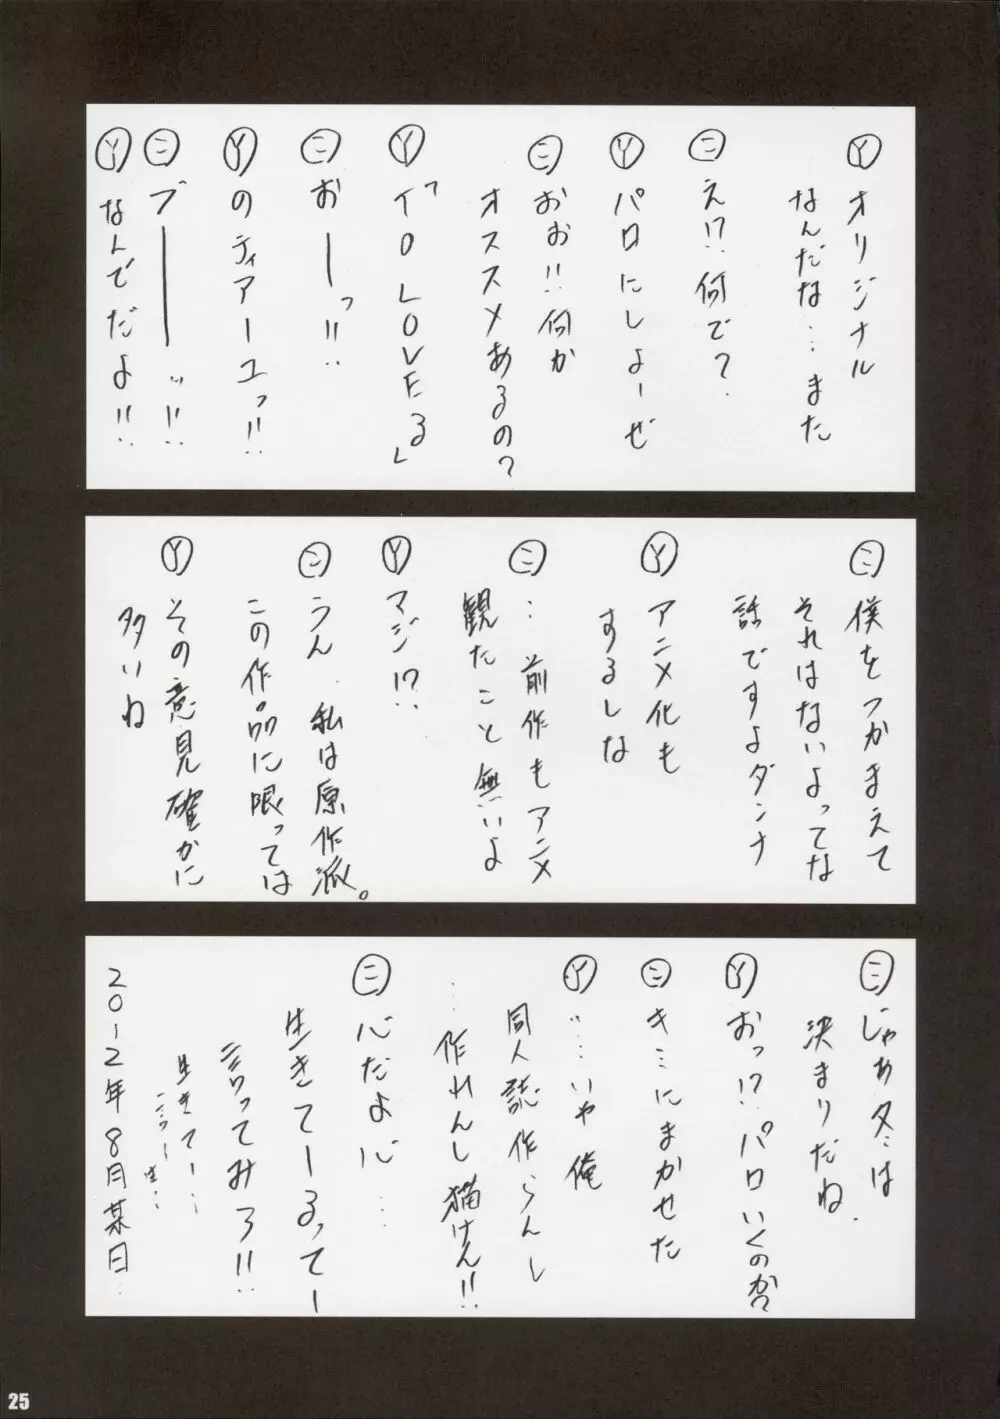 Ⓨ オリジナル
なんだな…また
㊁ え!?何で?
Ⓨ パロにしよーぜ
㊁ おお!!何か
オススメあるの?
Ⓨ 「TO LOVEる」
㊁ おーっ!!
Ⓨ のティアーユっ!!
㊁ ブーーーッ!!
Ⓨ なんでだよ!!
㊁ 僕をつかまえて
それはないよってな
話ですよダンナ
Ⓨ アニメ化も
するしな
㊁ …前作もアニメ
観たこと無いよ
Ⓨ マジ!?
㊁ うん、私は原作派。
この作品に限っては
Ⓨ その意見確かに
多いね
㊁ じゃあ冬は
決まりだね.
Ⓨ おっ!?パロいくのか?
㊁ キミにまかせた
Ⓨ ……いや俺
同人誌作らんし
…作れんし描けん!!
㊁ 心だよ心…
生きてーるってー
言ってみろ!!
生きてー…
2012年8月某日
25